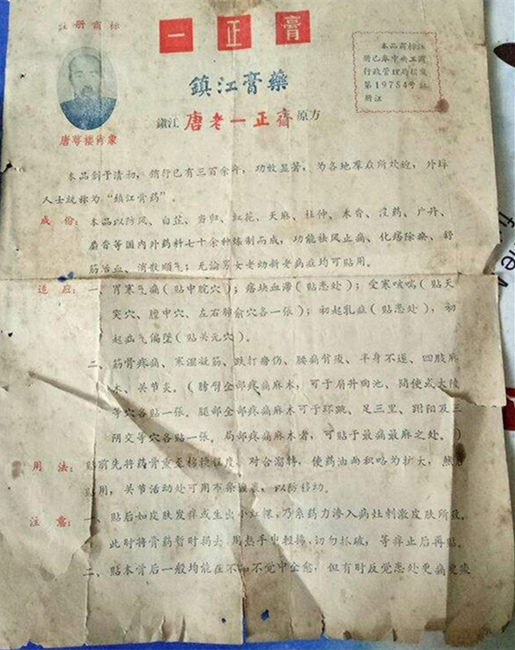 註册商标
一正膏
本品商标註
册已奉中央工商
行政管理局核發
第19754号註
册证
鎮江膏藥
鎮江 唐老一正齋 原方
唐萼楼肖象
本品创于清初，销行已有三百余年，功效显著，为各地羣众所欢迎，外埠
人士统称为“鎮江膏药”。
成份：本品以防风、白芷、当归、红花、天麻、杜仲、木香、没药、广丹、
麝香等国内外药料七十余种炼制而成，功能祛风止痛、化痞除癥、舒
筋活血、消散顺气；无论男女老幼新老病症均可贴用。
适应：一、胃寒气痛（贴中脘穴）；痞块血滞（贴患处）；受寒咳喘（贴天
突穴、膻中穴、左右肺俞穴各一张）；初起乳症（贴患处），初
起疝气偏坠（贴关元穴）。
二、筋骨疼痛、寒湿凝筋、跌打磨伤、腰痛背痠、半身不遂、四肢麻
木、关节炎。（膀臂全部疼痛麻木，可于肩井曲池、间使或大陵
等穴各贴一张。腿部全部疼痛麻木可于环跳、足三里、跗阳及三
阴交等穴各贴一张。局部疼痛麻木者，可贴于最痛最麻之处。）
用法：贴前先将药膏熏至稍软程度，对合溶转，使药油面积略为扩大，然后
贴用，关节活动处可用布条，以防移动。
注意：一、贴后如皮肤发痒或生出小红粿，乃系药力渗入病灶刺激皮肤所致。
此时将膏药暂时揭去，用热手巾轻擦，切勿抓破，等痒止后再贴。
二、贴本膏后一般均能在不知不觉中全愈，但有时反觉患处更痛更痠